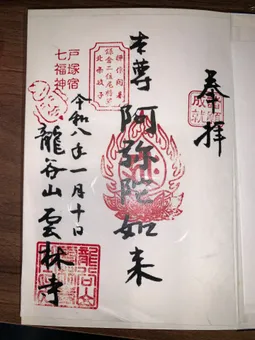 奉拝
成就
本尊 阿弥陀如来
北条政子
令和八年一月十日
龍谷山 雲林寺
戸塚宿
七福神